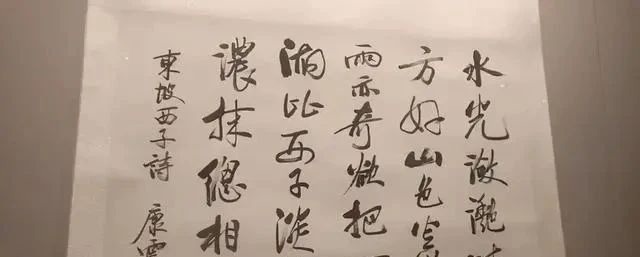 水光瀲灧
方好山色空
雨亦奇欲把
湖比西子淡
濃抹總相
東坡西子詩 康雲